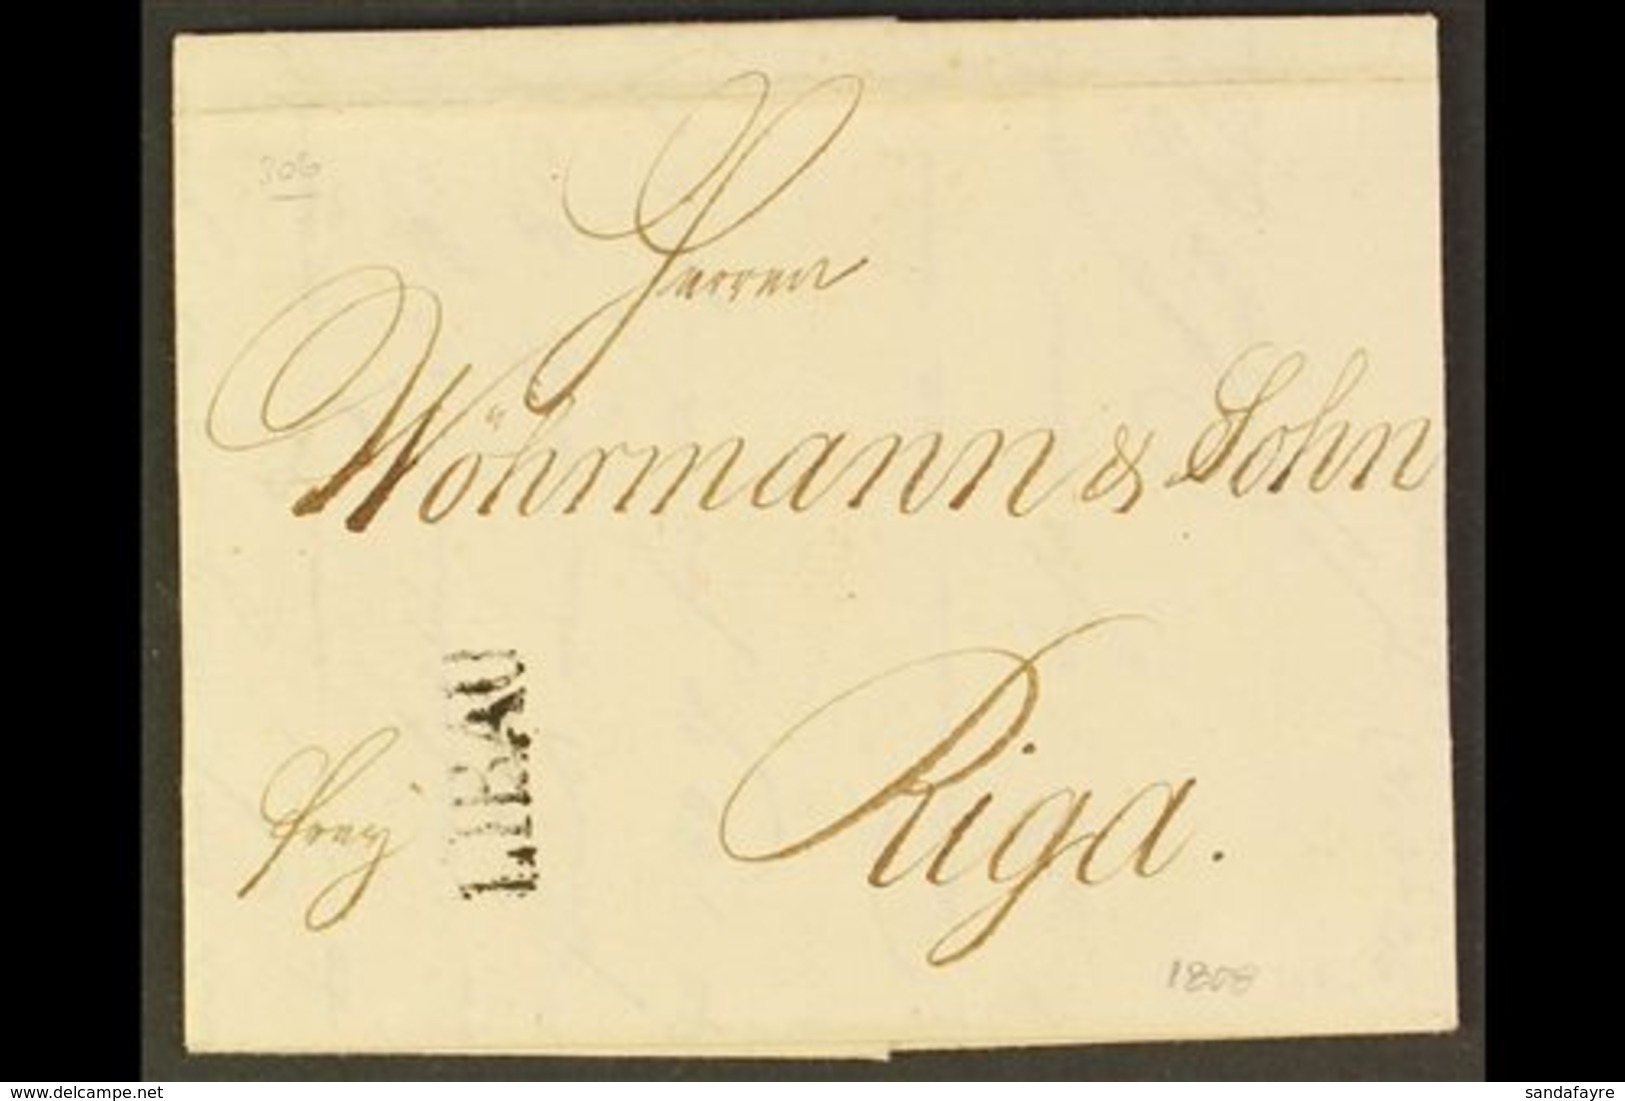 306
Herren
Wöhrmann & Sohn
Riga.
frey
LIBAU
1808
delcampe.net
sandafayre